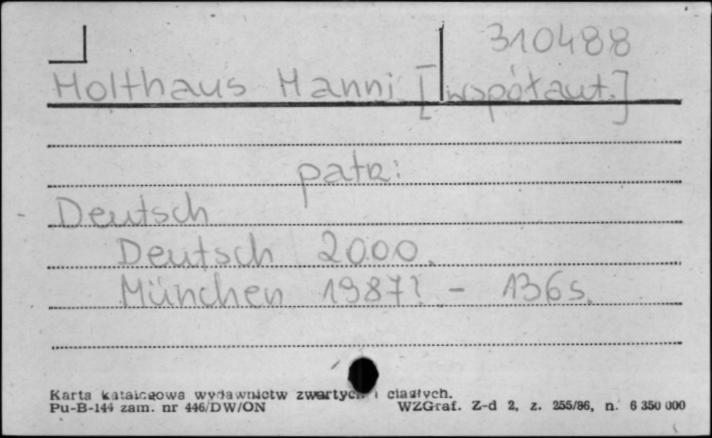 310488
Holthaus Hanni [współaut.]
patrz:
Deutsch
Deutsch 2000.
München 1987? - 136s.
Karta katalogowa wydawnictw zwartych i ciągłych.
Pu-B-144 zam. nr 446/DW/ON WZGraf. Z-d 2, z. 255/86, n. 6 350 000